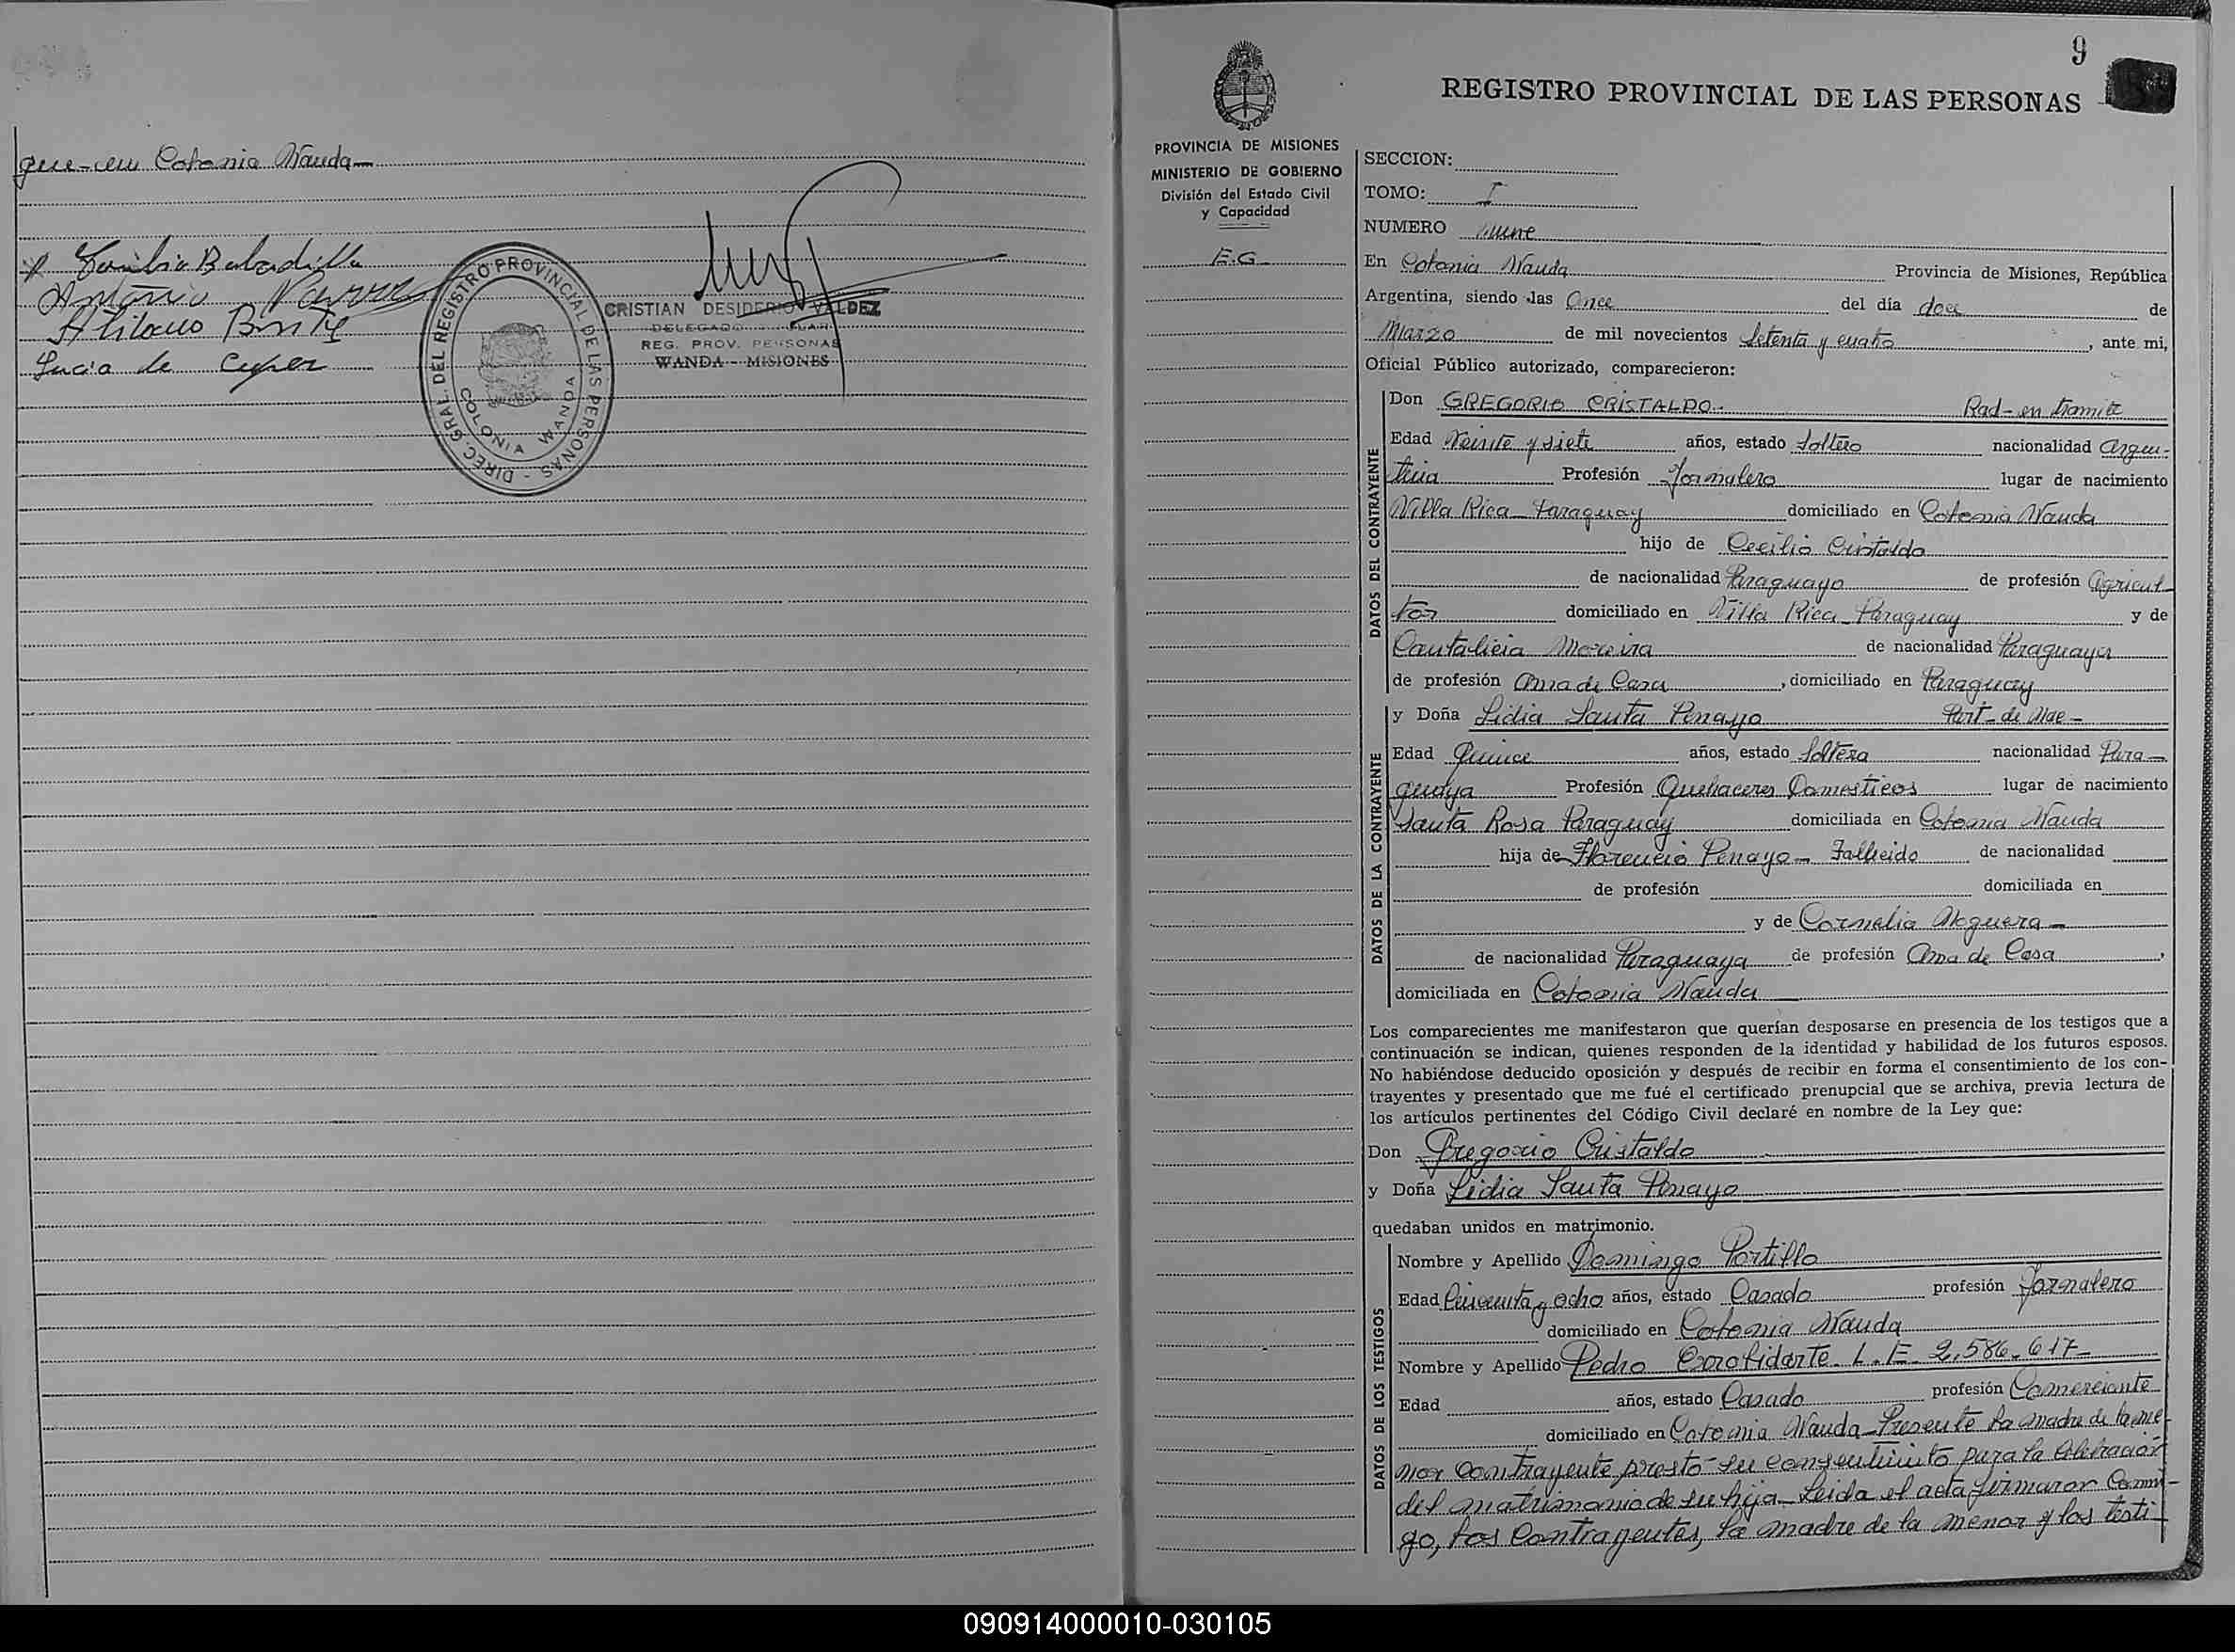 que en Colonia Wanda
Antonio
Atilano
Lucia de
DIREC. GRAL. DEL REGISTRO PROVINCIAL DE LAS PERSONAS -
COLONIA WANDA
CRISTIAN DESIDERIO VALDEZ
DELEGADO
REG. PROV. PERSONAS
WANDA - MISIONES
9
REGISTRO PROVINCIAL DE LAS PERSONAS
PROVINCIA DE MISIONES
MINISTERIO DE GOBIERNO
División del Estado Civil
y Capacidad
E.G.
SECCION:
TOMO: I
NUMERO nueve
En Colonia Wanda Provincia de Misiones, República
Argentina, siendo las Once del día doce de
Marzo de mil novecientos Setenta y cuatro, ante mi,
Oficial Público autorizado, comparecieron:
DATOS DEL CONTRAYENTE
Don GREGORIO CRISTALDO. Rad-en tramite
Edad Veinte y siete años, estado Soltero nacionalidad Argen-
tina Profesión Jornalero lugar de nacimiento
Villa Rica Paraguay domiciliado en Colonia Wanda
hijo de Cecilio Cristaldo
de nacionalidad Paraguayo de profesión Agricul-
tor domiciliado en Villa Rica-Paraguay y de
Cantalicia Moreira de nacionalidad Paraguaya
de profesión Ama de Casa, domiciliado en Paraguay
DATOS DE LA CONTRAYENTE
y Doña Lidia Santa Penayo Part-de Nac-
Edad Quince años, estado Soltera nacionalidad Para-
guaya Profesión Quehaceres Domesticos lugar de nacimiento
Santa Rosa Paraguay domiciliada en Colonia Wanda
hija de Florencio Penayo- Fallecido de nacionalidad
de profesión domiciliada en
y de Cornelia Noguera-
de nacionalidad Paraguaya de profesión Ama de Casa,
domiciliada en Colonia Wanda
Los comparecientes me manifestaron que querían desposarse en presencia de los testigos que a
continuación se indican, quienes responden de la identidad y habilidad de los futuros esposos.
No habiéndose deducido oposición y después de recibir en forma el consentimiento de los con-
trayentes y presentado que me fué el certificado prenupcial que se archiva, previa lectura de
los artículos pertinentes del Código Civil declaré en nombre de la Ley que:
Don Gregorio Cristaldo
y Doña Lidia Santa Penayo
quedaban unidos en matrimonio.
DATOS DE LOS TESTIGOS
Nombre y Apellido Domingo Portillo
Edad Cincuenta y ocho años, estado Casado profesión Jornalero
domiciliado en Colonia Wanda
Nombre y Apellido Pedro L.E. 2.586.617-
Edad años, estado Casado profesión Comerciante
domiciliado en Colonia Wanda-Presente la madre de la me-
nor contrayente prestó su consentimiento para la celebración
del matrimonio de su hija-Leida el acta firmaron Conmi-
go, los contrayentes, la madre de la menor y los testi-
090914000010-030105